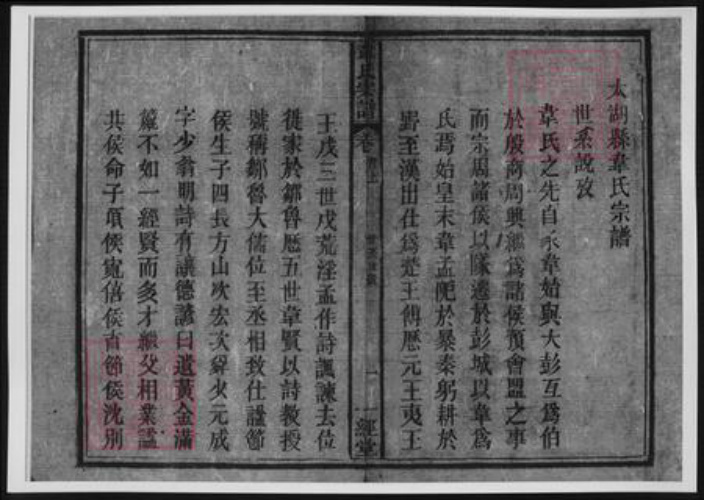 太湖縣韋氏宗譜
世系說攷
韋氏之先自豕韋始與大彭互爲伯
於殷商周興繼爲諸侯預會盟之事
而宗周諸侯以隊遷於彭城以韋爲
氏焉始皇末韋孟阨於暴秦躬耕於
野至漢出仕爲楚王傅歷元王夷王
韋氏宗譜 卷首上 世系說攷 一 一經堂
王戊三世戊荒淫孟作詩諷諫去位
徙家於鄒魯歷五世韋賢以詩教授
號稱鄒魯大儒位至丞相致仕諡節
侯生子四長方山次宏次舜少元成
字少翁明詩有讓德諺曰遺黃金滿
籯不如一經賢而多才繼父相業諡
共侯命子頃侯寬僖侯育節侯沈別